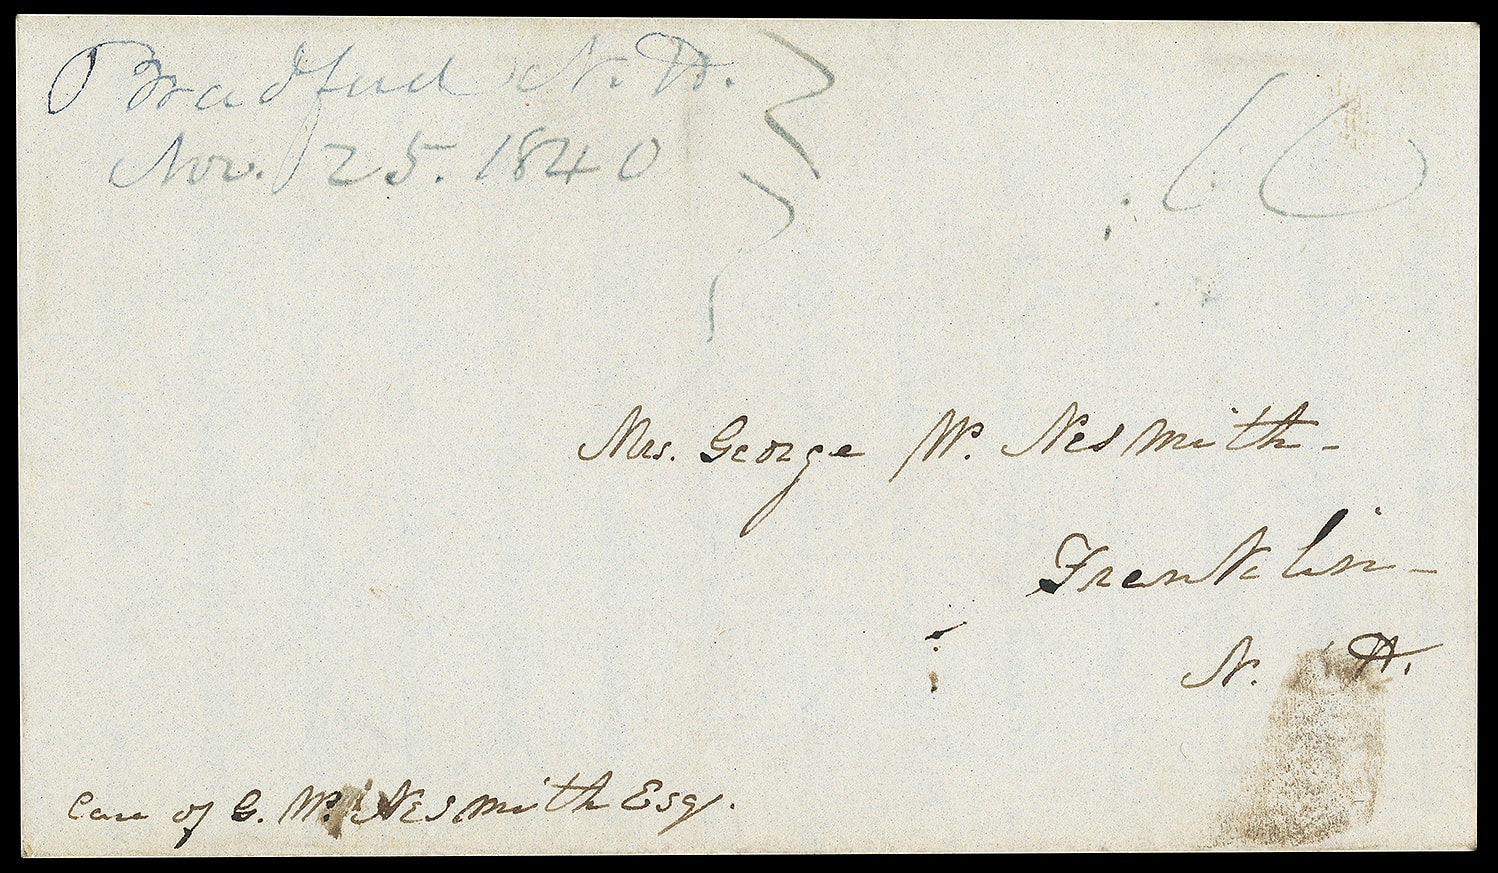 Bradford N. H.
Nov. 25. 1840
10
Mrs. George W. Nesmith -
Franklin -
N. H.
Care of G. W. Nesmith Esq.